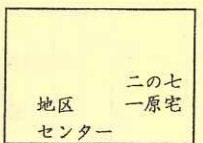 二の七
一原宅
地区
センター